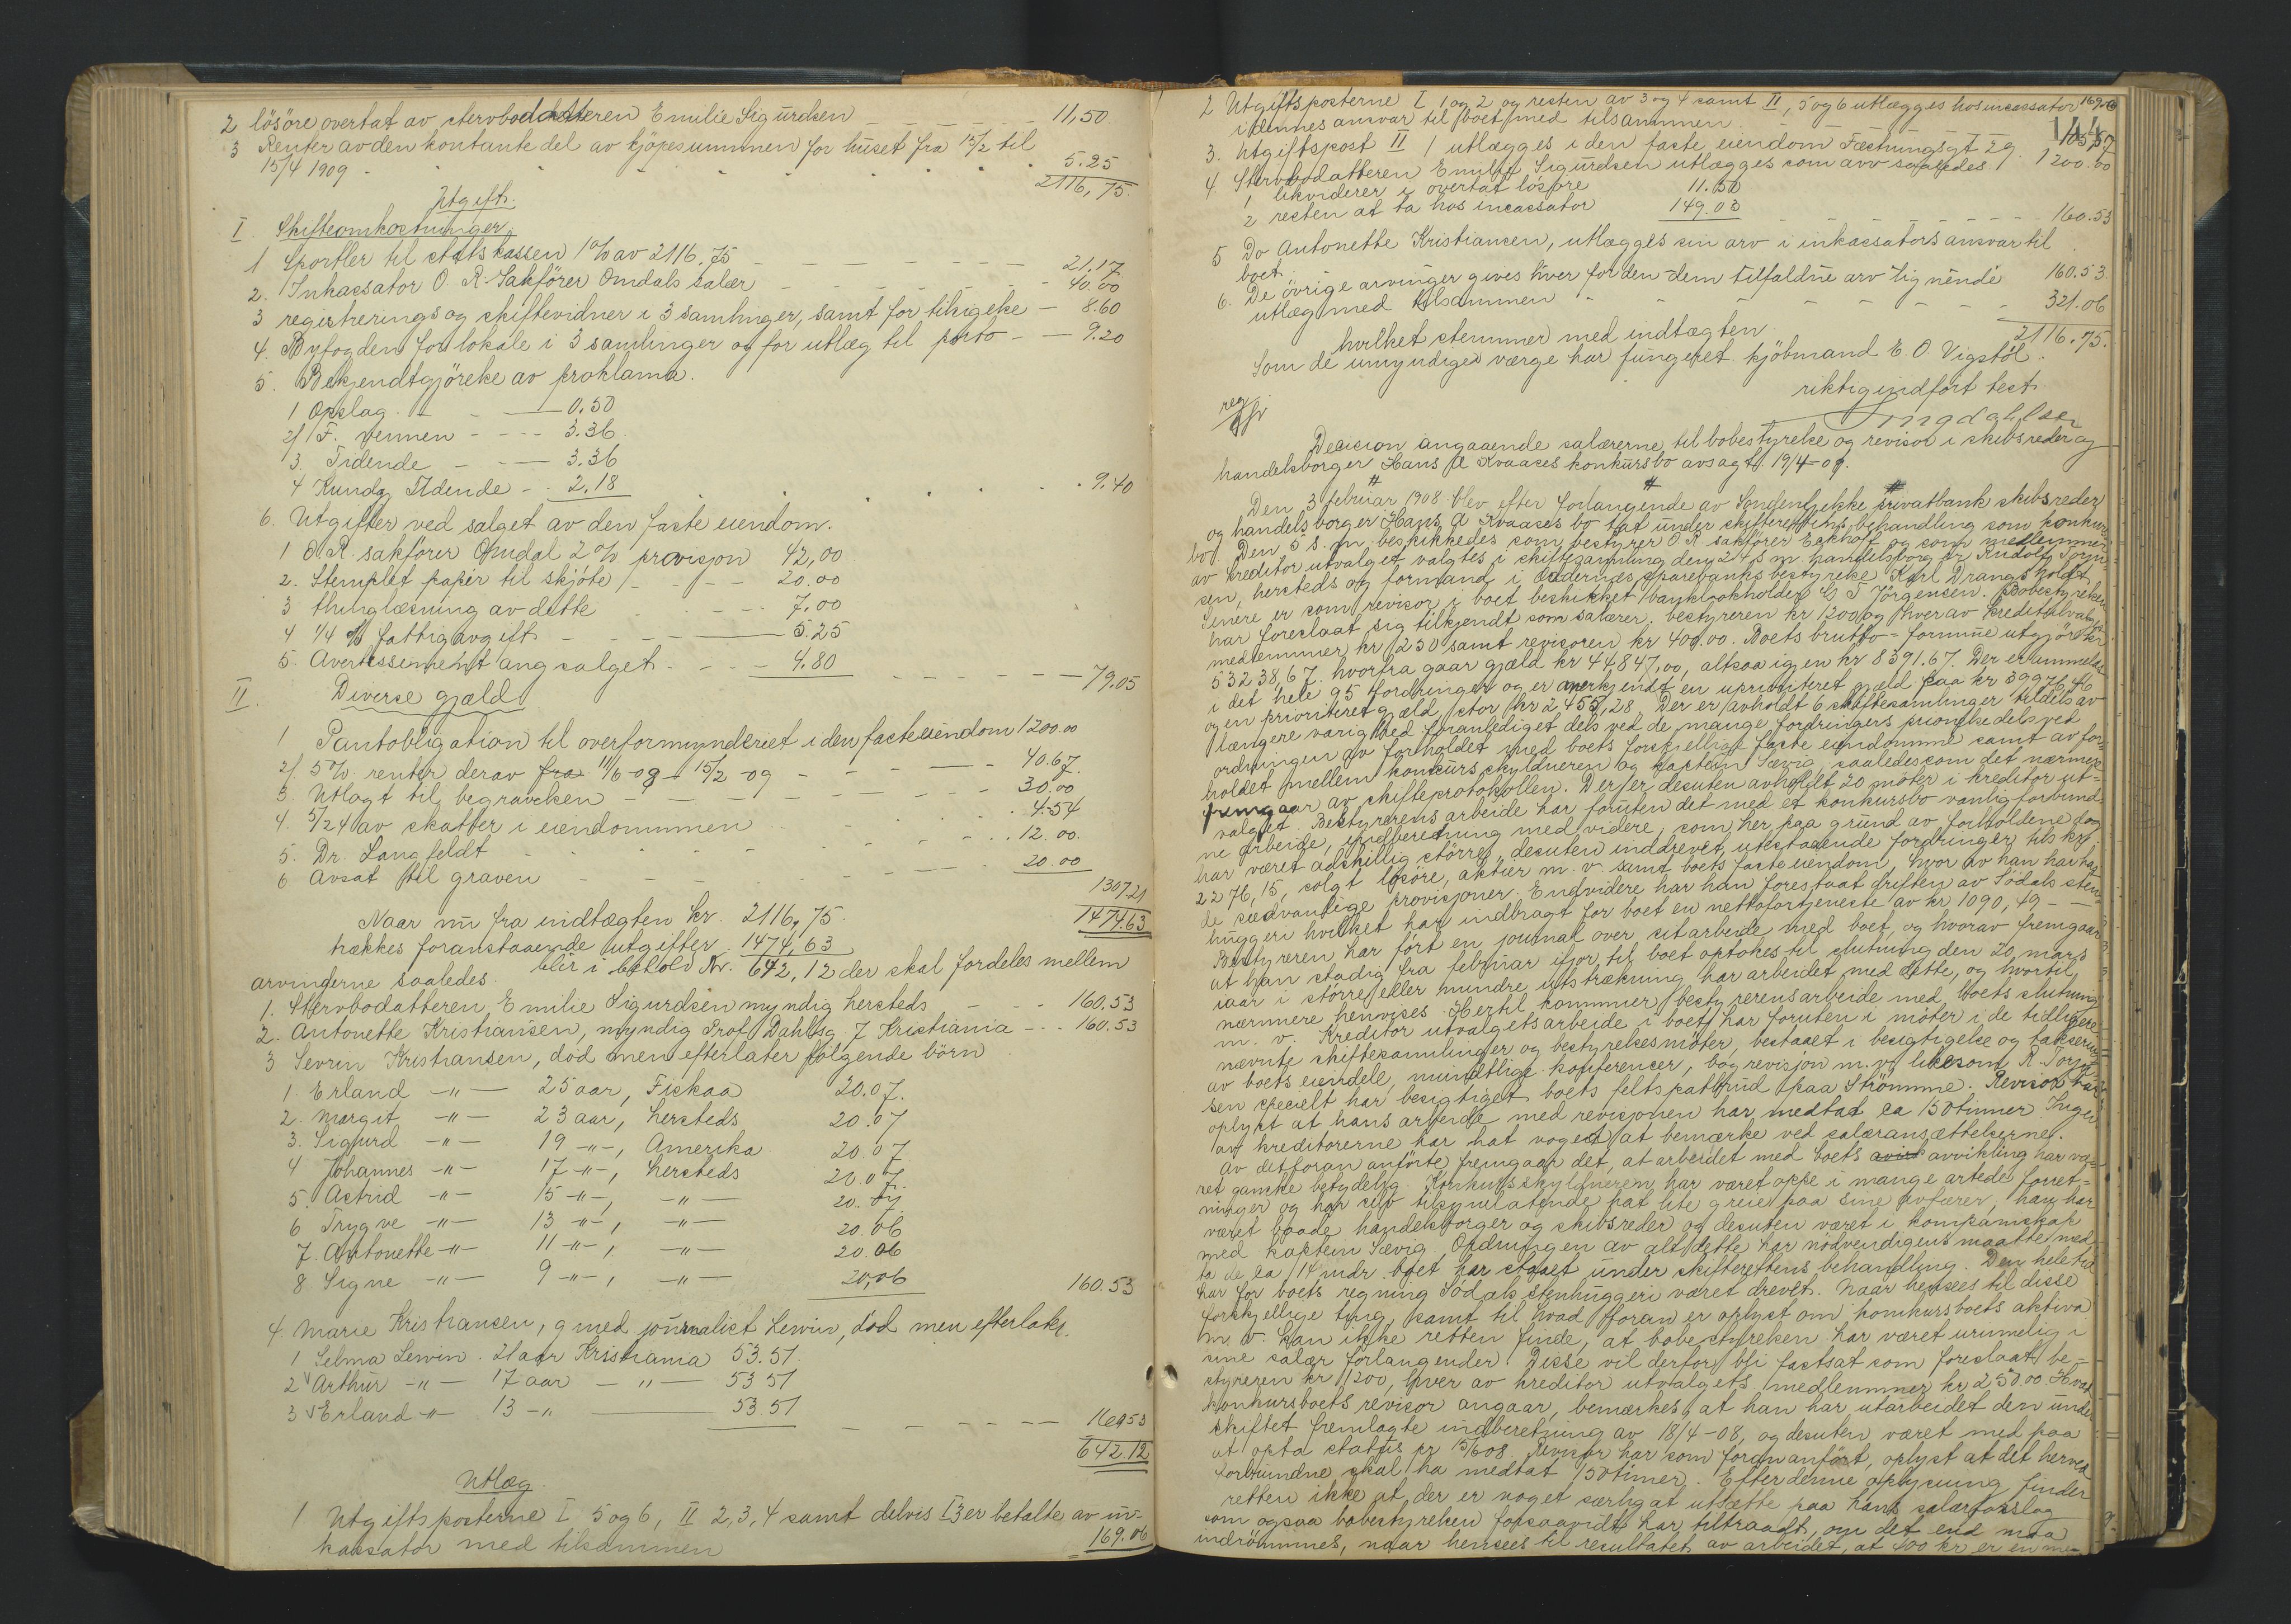 2 lösöre overtat av stervbodatteren Emilie Sigurdsen - - - - 11,50
3 Renter av den kontante del av kjöpesummen for huset fra 15/2 til
15/4 1909 . . . . . . . 5.25
2116,75.
Utgift.
I. Skifteomkostninger
1 Sportler til statskassen 1 % av 2116.75 - - - - - - - 21.17
2. Inkassator O. R. Sakförer Omdals salær - - - - - - - 40.00
3 registrerings og skiftevidner i 3 samlinger, samt for tilsigelse - 8.60
4. Byfogden for lokale i 3 samlinger og for utlæg til porto - - 9.20
5. Bekjendtgjörelse av proklama.
1 Opslag. - - - 0.50
2/ F. vennen - - - - 3.36
3. Tidende - - - 3.36
4 Kundg. Tidende - - 2.18 . . . . . . . 9.40
6. Utgifter ved salget av den faste eiendom.
1 O.R. sakförer Omdal 2 % provisjon 42,00
2. Stemplet papir til skjöte - - - 20.00
3 thinglæsning av dette - - - 7.00
4 1/4 % fattigavgift - - - - 5.25
5. Avertissement ang salget - - - 4.80 - - - - - 79.05
II. Diverse gjæld
1 Pantobligation til overformynderiet i den faste eiendom 1200.00
2/ 5 % renter derav fra 11/6-08 - 15/2-09 - - - - - 40.67.
3. Utlagt til begravelsen - - - - - - - 30.00
4. 5/24 av skatter i eiendommen . . . . 4.54
5. Dr. Langfeldt - - - - - - - . 12.00.
6 Avsat til graven - - - - - - - 20.00
1307.21
1474.63
Naar nu fra indtægten kr. 2116,75.
trækkes foranstaaende utgifter 1474,63
blir i behold kr. 642,12 der skal fordeles mellem
arvingerne saaledes.
1. Stervbodatteren Emilie Sigurdsen myndig hersteds - - - 160.53
2. Antonette Kristiansen, myndig Prof. Dahlsg 7 Kristiania - - - 160.53
3 Sevrin Kristiansen, död men efterlater fölgende börn
1. Erland -"- 25 aar, Fiskaa 20.07.
2. Margit -"- 23 aar, hersteds 20.07
3. Sigurd -"- 19 -"-, Amerika 20.07
4 Johannes -"- 17 -"-, hersteds 20.07.
5. Astrid -"- 15 -"-, -"- 20.07
6 Trygve -"- 13 -"-, -"- 20.06
7. Antonette -"- 11 -"-, -"- 20.06
8 Signe -"- 9 -"-, -"- 20,06 160.53
4. Marie Kristiansen, g med journalist Lewin, död men efterlater.
1 Selma Lewin. 21 aar Kristiania 53.51.
2 Arthur -"- 17 aar -"- 53 51
3 Erland -"- 13 -"- 53.51 - - - - - 160.53
642.12
Utlæg.
1 Utgiftsposterne I 5 og 6, II 2, 3, 4 samt delvis I 3 er betalte av in-
kassator med tilsammen 169.06
2 Utgiftsposterne I 1 og 2 og resten av 3 og 4 samt II, 5 og 6 utlægges hos incassator 169.06
i dennes ansvar til boet med tilsammen 105,57
3. Utgiftspost II 1 utlægges i den faste eiendom Fæstningsgt 29. 1200.00
4. Stervbodatteren Emilie Sigurdsen utlægges som arv saaledes
1 likviderer i overtat lösöre 11.50
2 resten at ta hos incassator 149.03 - - - - - - - - 160.53
5 Do Antonette Kristiansen, utlægges sin arv i inkassators ansvar til
boet. 160.53
6. De övrige arvinger gives hver for den dem tilfaldne arv lignende
utlæg med tilsammen - - - - - - - - - 321.06
hvilket stemmer med indtægten. 2116.75.
Som de umyndiges værge har fungeret kjöbmand E. O. Vigstöl.
riktig indfört test.
reg
Decision angaaende salærerne til bobestyrelse og revisor i skibsreder og
handelsborger Hans A Kvaases konkursbo avsagt 19/4-09.
Den 3 februar 1908 blev efter forlangende av Söndenfjelske privatbank skibsreder
og handelsborger Hans A Kvaases bo tat under skifterettens behandling som konkurs-
bo. Den 5 s. m. beskikkedes som bestyrer O R sakförer Eckhoff og som medlemmer
av kreditor utvalget valgtes i skiftesamling den 24 s m handelsborger Rudolf Torjus-
sen, hersteds og formand i Oddernes sparebanks bestyrelse Karl Drangsholdt
Senere er som revisor i boet beskikket bankbokholder C T Jörgensen. Bobestyrelsen
har foreslaat sig tilkjendt som salærer: bestyreren kr 1200 og hver av kreditutvalgets
medlemmer kr 250 samt revisoren kr 400.00. Boets brutto-formue utgjör kr
53238,67. hvorfra gaar gjæld kr 44,847,00, altsaa igjen kr 8391.67. Der er anmeldt
i det hele 95 fordringer og er anerkjendt en uprioriteret gjæld paa kr 39976,46
og en prioriteret gjæld stor kr 2,455,28. Der er avholdt 6 skiftesamlinger tildels av
længere varighed foranlediget dels ved de mange fordringers prövelse dels ved
ordningen av forholdet med boets forskjellige faste eiendomme samt av for-
holdet mellem konkursskyldneren og kaptein Sævig, saaledes som det nærmere
fremgaar av skifteprotokollen. Der er desuten avholdt 20 möter i kreditor ut-
valget. Bestyrerens arbeide har foruten det med et konkursbo vanlig forbund-
ne arbeide, indberetning med videre, som her paa grund av forholdene dog
har været adskillig större, desuten inddrevet utestaaende fordringer tils kr
2276,15, solgt lösöre, aktier m. v. samt boets faste eiendom, hvor av han har havt
de sedvanlige provisjoner. Endvidere har han forestaat driften av Södals sten-
huggeri hvilket har indbragt for boet en nettofortjeneste av kr 1090,49 -
Bestyreren har fört en journal over sit arbeide med boet, og hvorav fremgaar
at han stadig fra februar ifjor til boet optokes til slutning den 20 mars
iaar i större eller mindre utstrækning har arbeidet med dette, og hvortil
nærmere henvises. Hertil kommer bestyrerens arbeide med boets slutning
m. v. Kreditor utvalgets arbeide i boet har foruten i möter i de tidligere
nævnte skiftesamlinger og bestyrelsesmöter, bestaaet i besigtigelse og taksering
av boets eiendele, mundtlige konferencer, bog revisjon m.v. likesom R. Torjus-
sen specielt har besigtiget boets feltspatbrud paa Strömme. Revisor har
oplyst at hans arbeide med revisjonen har medtat ca 150 timer. Ingen
av kreditorerne har hat noget at bemærke ved salæransættelserne.
Av det foran anförte fremgaar det, at arbeidet med boets avvikling har væ-
ret ganske betydelig. Konkursskyldneren har været oppe i mange artede forret-
ninger og har selv tilsynelatende hat lite greie paa sine affærer, han har
været baade handelsborger og skibsreder og desuten været i kompaniskap
med kaptein Sævig. Ordningen av alt dette har nödvendigens maattet med-
ta de ca 14 mdr. boet har staaet under skifterettens behandling. Den hele tid
har for boets regning Södals stenhuggeri været drevet. Naar hensees til disse
forskjellige ting, samt til hvad foran er oplyst om konkursboets aktiva
m. v. kan ikke retten finde, at bobestyrelsen har været urimelig i
sine salær forlangender. Disse vil derfor bli fastsat som foreslaat, be-
styreren kr 1200, hver av kreditor utvalgets medlemmer kr 250.00. Hvad
konkursboets revisor angaar, bemærkes, at han har utarbeidet den under
skiftet fremlagte indberetning av 18/4-08, og desuten været med paa
at opta status pr 15/6 08. Revisor har som foran anfört, oplyst at det herved
forbundne skal ha medtat 150 timer. Efter denne oplysning finder
retten ikke at der er noget særlig at utsætte paa hans salærforslag
som ogsaa bobestyrelsen forsaavidt har tiltraadt, om det end maa
indrömmes, naar hensees til resultatet av arbeidet, at 400 kr er en